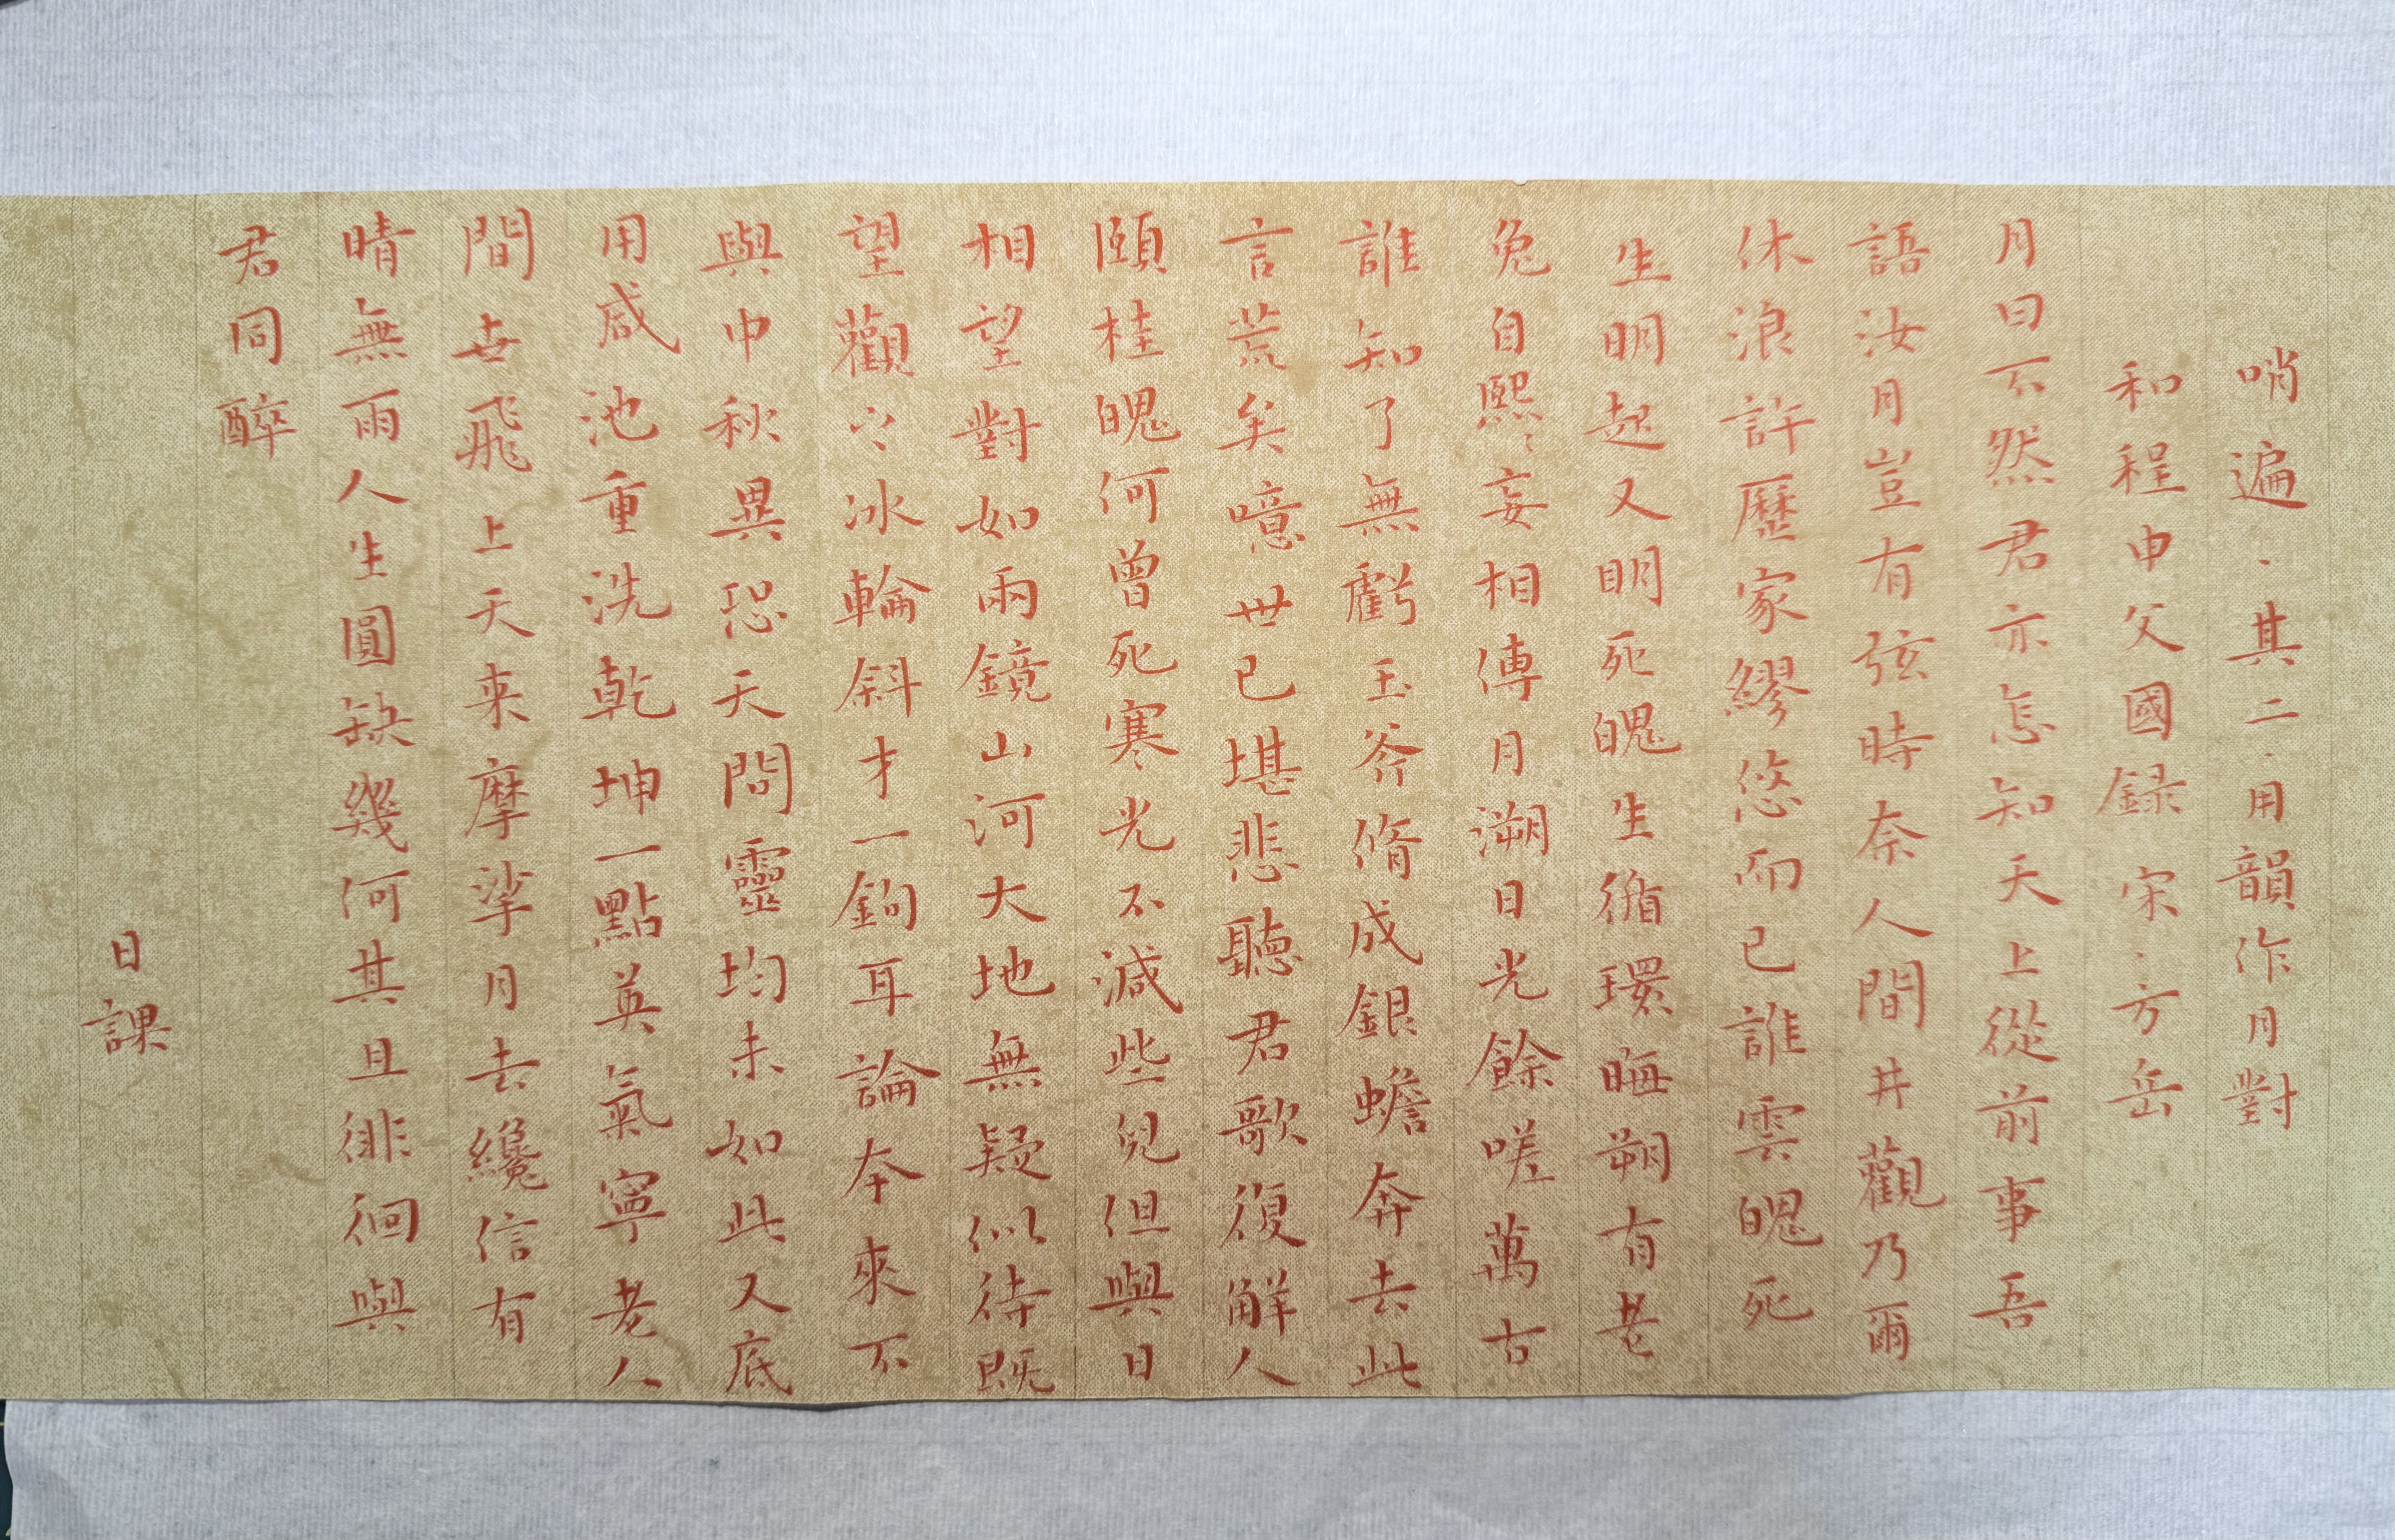 哨遍、其二、用韻作月對
和程申父國録 宋、方岳
月曰不然君亦怎知天上從前事吾
語汝月豈有弦時奈人間井觀乃爾
休浪許歷家繆悠而已誰雲魄死
生明起又明死魄生循環晦朔有老
兔自熙〻妄相傳月溯日光餘嗟萬古
誰知了無虧玉斧脩成銀蟾奔去此
言荒矣噫世已堪悲聽君歌復解人
頤桂魄何曾死寒光不減些兒但與日
相望對如兩鏡山河大地無疑似待既
望觀之冰輪斜才一鉤耳論本來不
與中秋異恐天問靈均未如此又底
用咸池重洗乾坤一點英氣寧老人
間世飛上天來摩挲月去纔信有
晴無雨人生圓缺幾何其且徘徊與
君同醉
日課